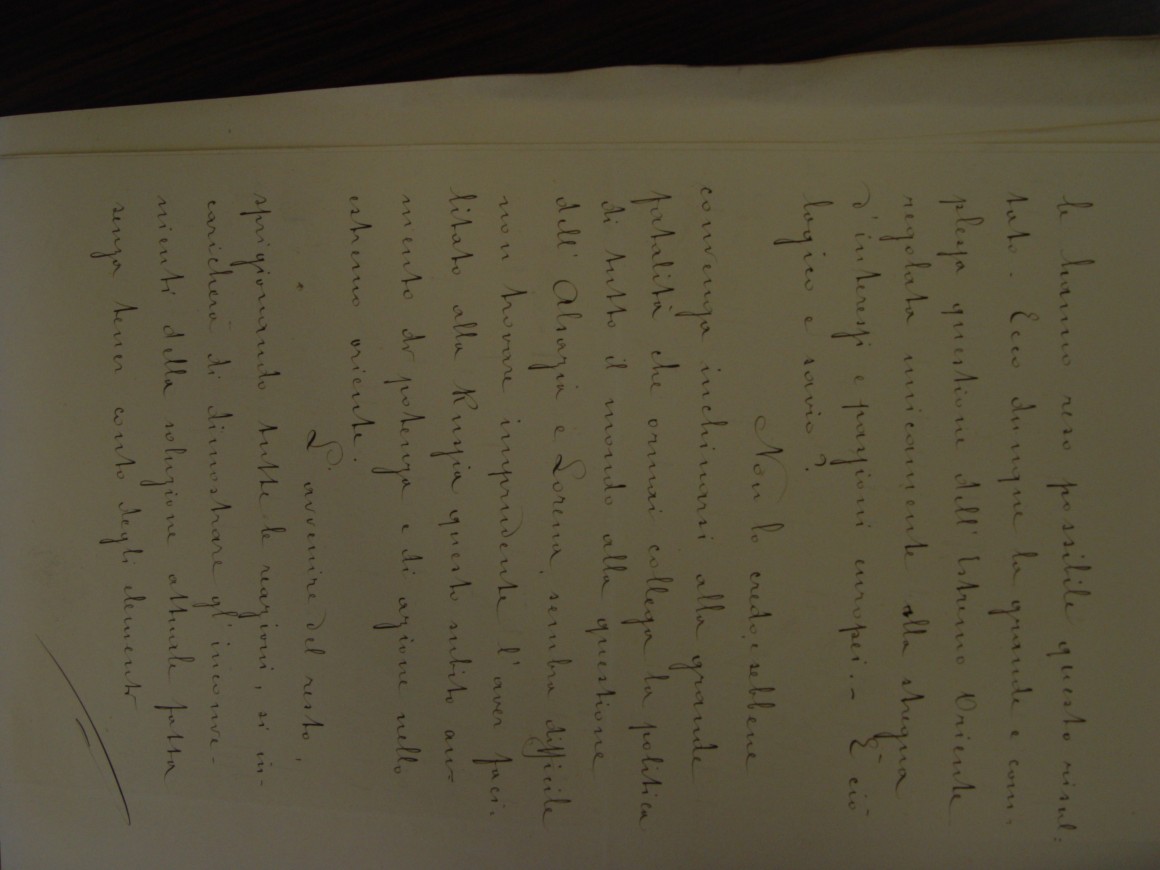 le hanno reso possibile questo risul:
tato. Ecco dunque la grande e com:
plessa questione dell'Estremo Oriente
regolata unicamente alla stregua
d'interessi e passioni europei. - È ciò
logico e savio?
Non lo credo, e sebbene
convenga inchinarsi alla grande
fatalità che ormai collega la politica
di tutto il mondo alla questione
dell'Alsazia e Lorena, sembra difficile
non trovare imprudente l'aver faci-
litato alla Russia questo subito au-
mento di potenza e di azione nello
estremo oriente.
L'avvenire del resto,
sprigionando tutte le reazioni, si in-
caricherà di dimostrare gl'inconve-
nienti della soluzione attuale fatta
senza tener conto degli elementi